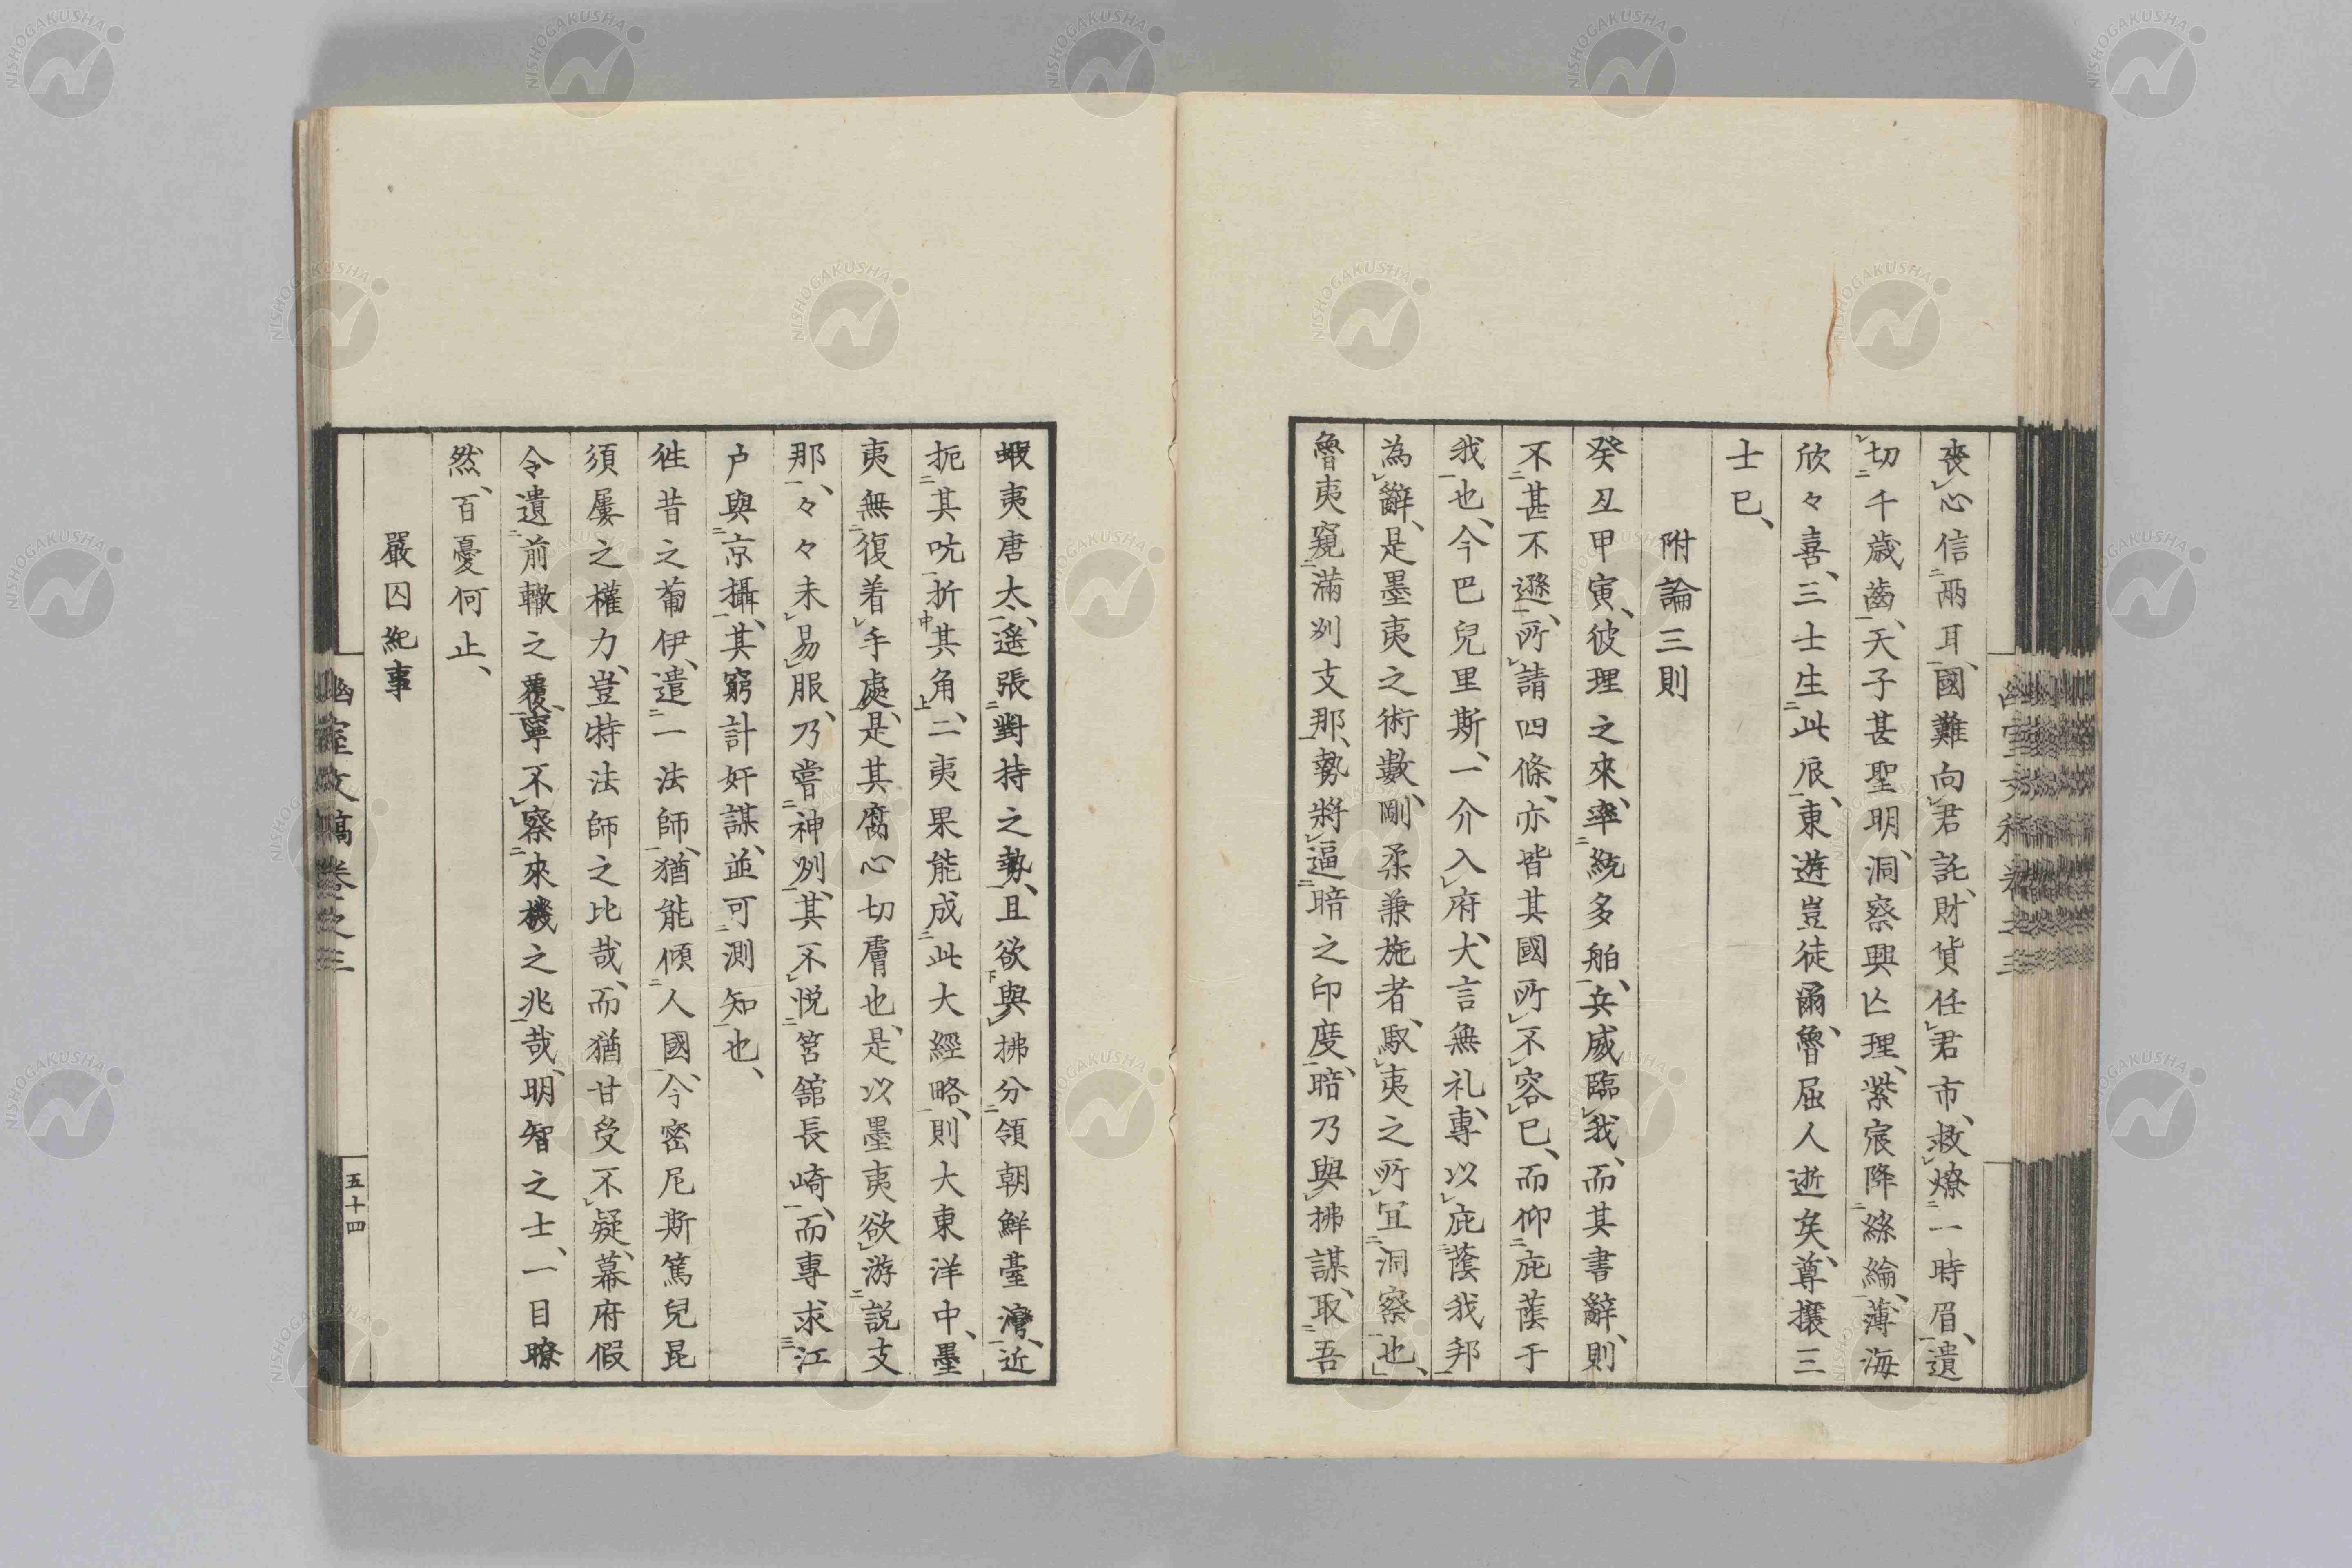 喪心信両耳、國難向君託、財貨任君市、救燎一時眉、遺
切千歳齒、天子甚聖明、洞察興亡理、紫宸降絲綸、薄海
欣々喜、三士生此辰、東遊豈徒爾、魯屈人逝矣、尊攘三
士已、
附論三則
癸丑甲寅、彼理之來、率統多舶、兵威臨我、而其書辭、則
不甚不遜、所請四條、亦皆其國所不容已、而仰庇蔭于
我也、今巴兒里斯、一介入府、大言無礼、專以庇蔭我邦
為辭、是墨夷之術數、剛柔兼施者、馭夷之所宜洞察也、
魯夷窺滿州支那、勢將逼暗之印度、暗乃與拂謀、取吾
蝦夷唐太、遙張對持之勢、且欲與拂分領朝鮮臺灣、近
扼其吭折其角、二夷果能成此大經略、則大東洋中、墨
夷無復着手處、是其腐心切膚也、是以墨夷欲游説支
那、々々未易服、乃嘗神州、其不悦筥舘長崎、而專求江
戸與京攝、其窮計奸謀、並可測知也、
徃昔之葡伊、遣一法師、猶能傾人國、今密尼斯篤兒昆
須屡之權力、豈特法師之比哉、而猶甘受不疑、幕府假
令遺前轍之覆、寧不察來機之兆哉、明智之士、一目瞭
然、百憂何止、
嚴囚紀事
幽室文稿卷之三
五十四